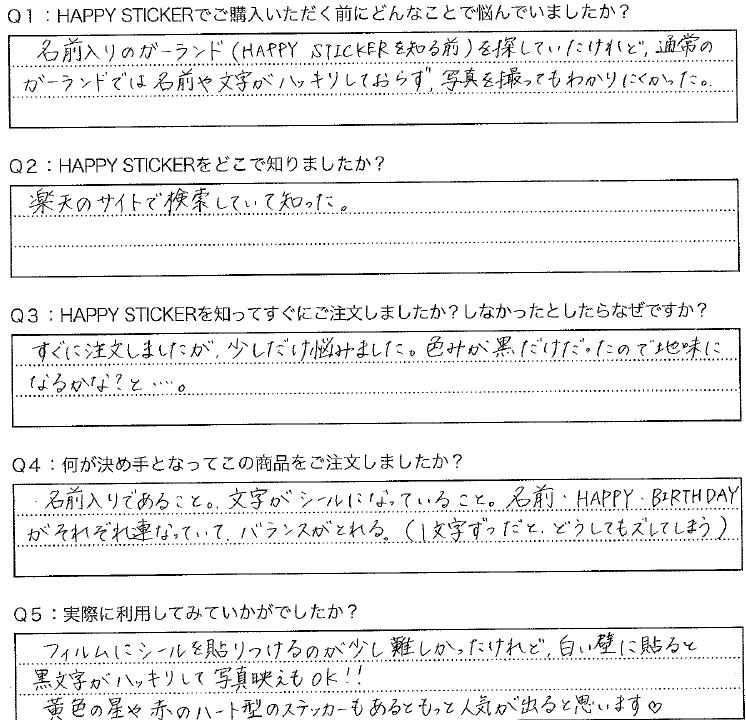 Q1：HAPPY STICKERでご購入いただく前にどんなことで悩んでいましたか？
名前入りのガーランド(HAPPY STICKERを知る前)を探していたけれど、通常の
ガーランドでは名前や文字がハッキリしておらず、写真を撮ってもわかりにくかった。
Q2：HAPPY STICKERをどこで知りましたか？
楽天のサイトで検索していて知った。
Q3：HAPPY STICKERを知ってすぐにご注文しましたか？しなかったとしたらなぜですか？
すぐに注文しましたが、少しだけ悩みました。色みが黒だけだったので地味に
なるかな？と…。
Q4：何が決め手となってこの商品をご注文しましたか？
・名前入りであること。文字がシールになっていること。名前・HAPPY・BIRTHDAY
がそれぞれ連なっていて、バランスがとれる。(1文字ずつだと、どうしてもズレてしまう)
Q5：実際に利用してみていかがでしたか？
フィルムにシールを貼りつけるのが少し難しかったけれど、白い壁に貼ると
黒文字がハッキリして写真映えもOK!!
黄色の星や赤のハート型のステッカーもあるともっと人気が出ると思います♡